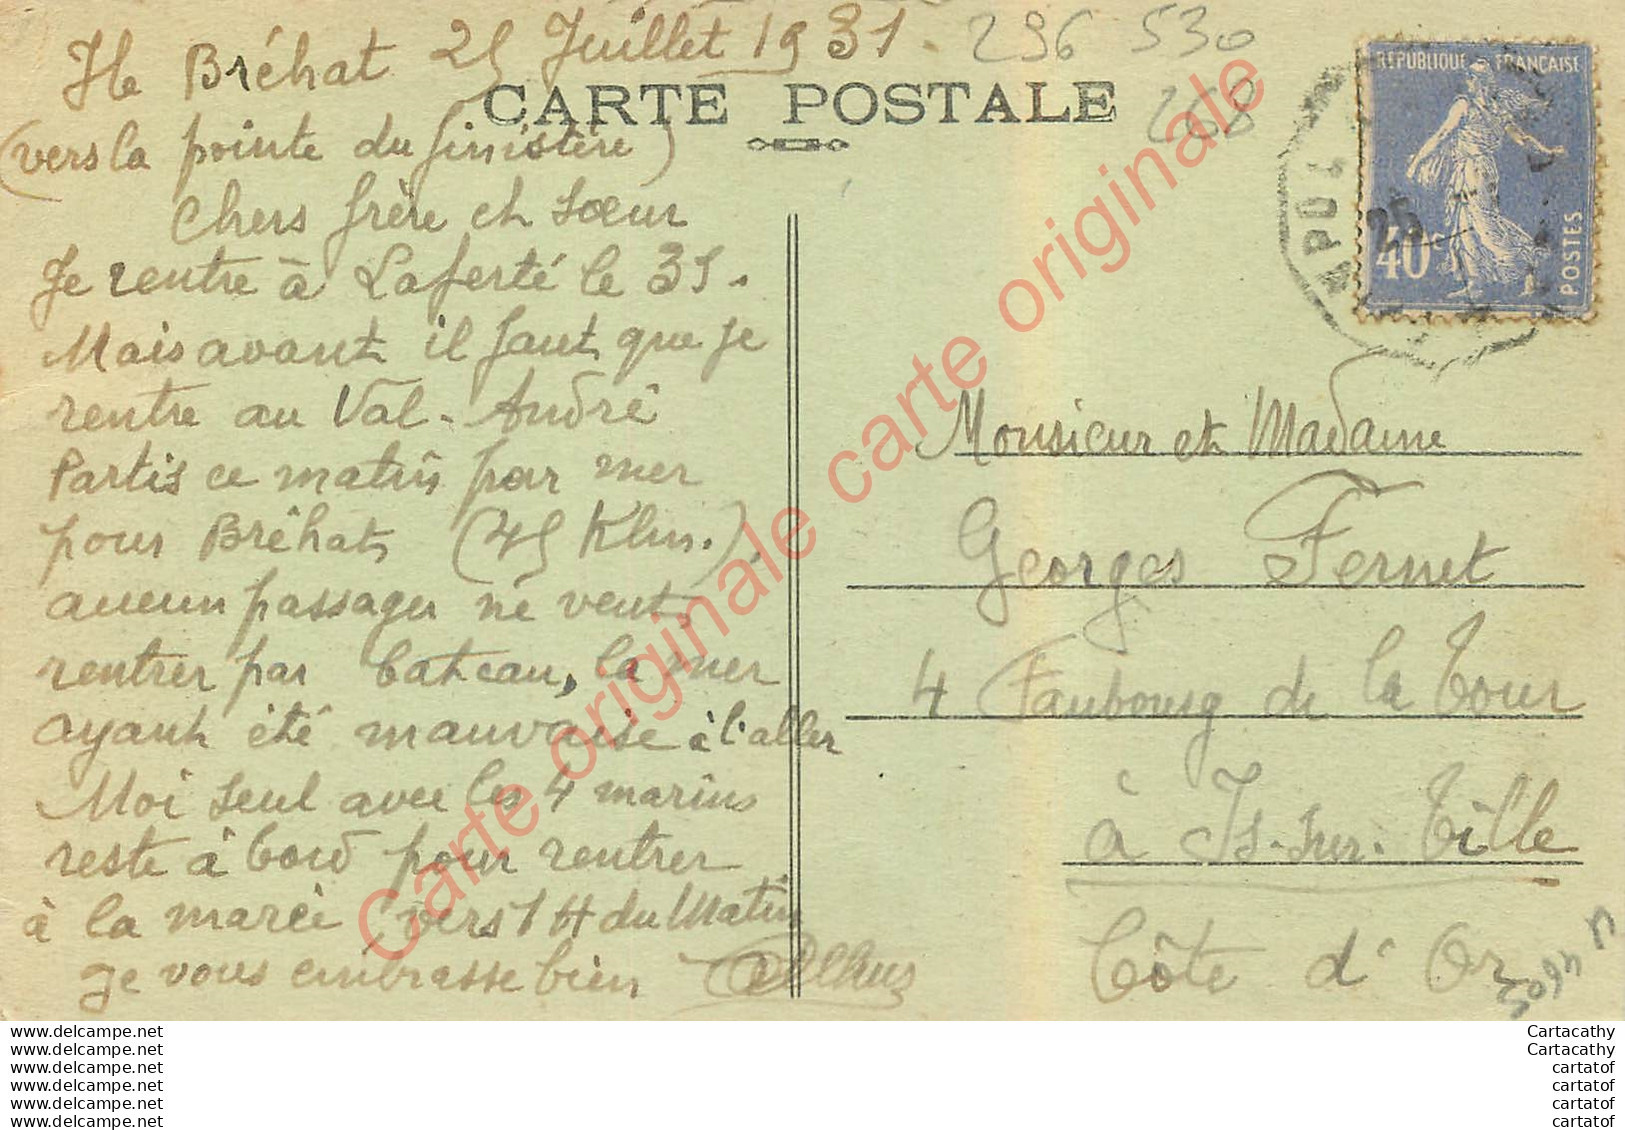 Ile Bréhat 25 Juillet 1931.
296 530
268
CARTE POSTALE
(vers la pointe du finistère)
Chers frère et soeur
Je rentre à Laferté le 31.
Mais avant il faut que je
rentre au Val-André
Partis ce matin par mer
pour Bréhat, (45 Klm.),
aucun passager ne veut
rentrer par bateau, la mer
ayant été mauvaise à l'aller
Moi seul avec les 4 marins
reste à bord pour rentrer
à la marée (vers 1 H du Matin
je vous embrasse bien
REPUBLIQUE FRANÇAISE
40c
POSTES
25
Monsieur et Madame
Georges Fernet
4 Faubourg de la Tour
à Is-sur-Tille
Côte d'Or
Carte originale carte originale
www.delcampe.net
www.delcampe.net
www.delcampe.net
www.delcampe.net
www.delcampe.net
www.delcampe.net
Cartacathy
Cartacathy
cartatof
cartatof
cartatof
cartatof